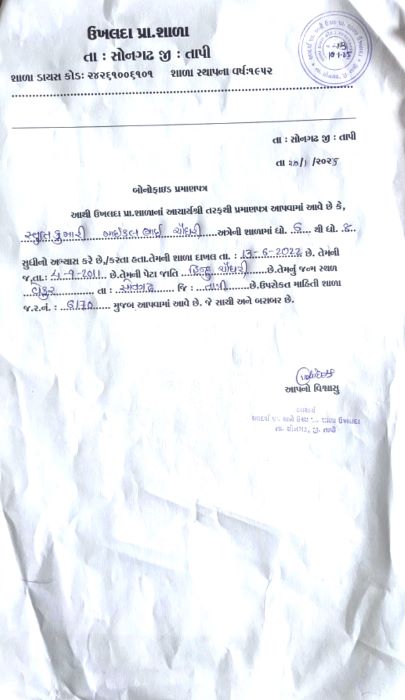 ઉખલદા પ્રા.શાળા
તા : સોનગઢ જી : તાપી
શાળા ડાયસ કોડ: ૨૪૨૬૧૦૦૬૧૦૧ શાળા સ્થાપના વર્ષ:૧૯૫૨
તા : સોનગઢ જી : તાપી
તા ૨૦/૧ /૨૦૨૫
બોનોફાઇડ પ્રમાણપત્ર
આથી ઉખલદા પ્રા.શાળાનાં આચાર્યશ્રી તરફથી પ્રમાણપત્ર આપવામાં આવે છે કે,
સ્તુતિકુમારી માઈકલભાઈ ચૌધરી અત્રેની શાળામાં ધો. ૬ થી ધો. ૮
સુધીનો અભ્યાસ કરે છે,/કરતા હતા.તેમની શાળા દાખલ તા. : 13-6-2022 છે. તેમની
જ.તા.: 4-9-2011 છે.તેમની પેટા જાતિ હિન્દુ ચૌધરી છે.તેમનું જન્મ સ્થળ
તા : સોનગઢ જિ : તાપી છે.ઉપરોકત માહિતી શાળા
જ.ર.નં. : 6170 મુજબ આપવામાં આવે છે. જે સાચી અને બરાબર છે.
આપનો વિશ્વાસુ
આચાર્ય
તા. સોનગઢ, જી. તાપી